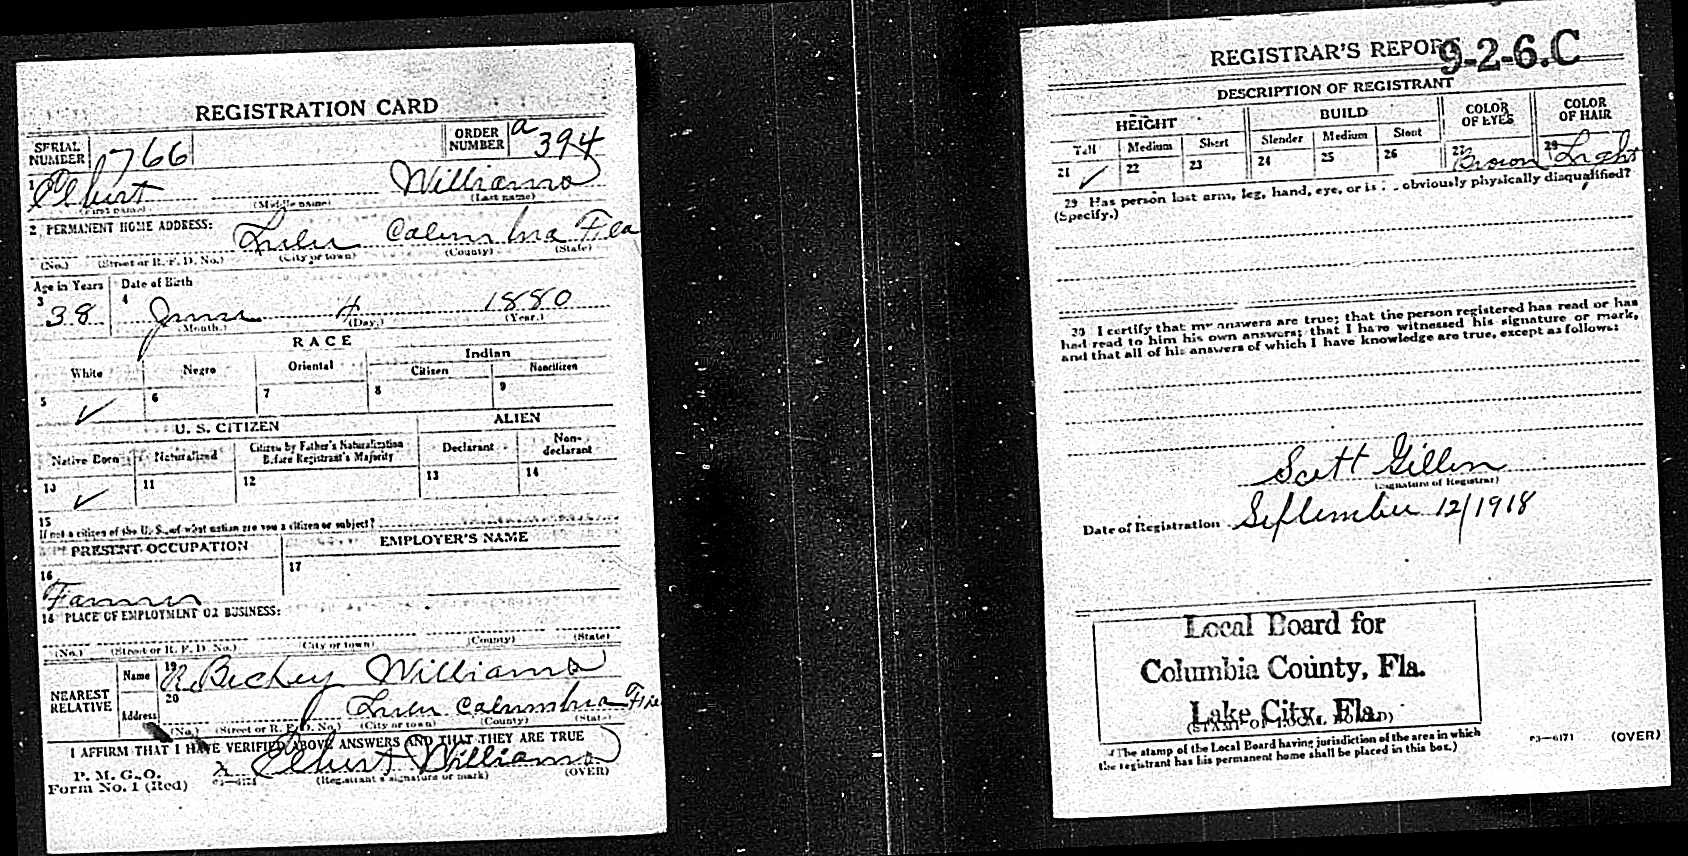 REGISTRATION CARD
SERIAL NUMBER 1766
ORDER NUMBER a 394
1 Elbert Williams
(First name) (Middle name) (Last name)
2 PERMANENT HOME ADDRESS:
Lulu Columbia Fla
(No.) (Street or R. F. D. No.) (City or town) (County) (State)
Age in Years Date of Birth
3 38 4 June 4 1880
(Month.) (Day.) (Year.)
RACE
White Negro Oriental Indian
Citizen Noncitizen
5 ✓ 6 7 8 9
U. S. CITIZEN ALIEN
Native Born Naturalized Citizen by Father's Naturalization Before Registrant's Majority Declarant Non-declarant
10 ✓ 11 12 13 14
15
If not a citizen of the U. S., of what nation are you a citizen or subject?
PRESENT OCCUPATION EMPLOYER'S NAME
16 Farmer 17
18 PLACE OF EMPLOYMENT OR BUSINESS:
(No.) (Street or R. F. D. No.) (City or town) (County) (State)
NEAREST RELATIVE
Name 19 R. Beckey Williams
Address 20 Lulu Columbia Fla
(No.) (Street or R. F. D. No.) (City or town) (County) (State)
I AFFIRM THAT I HAVE VERIFIED ABOVE ANSWERS AND THAT THEY ARE TRUE
P. M. G. O.
Form No. 1 (Red)
x Elbert Williams
(Registrant's signature or mark) (OVER)
REGISTRAR'S REPORT
9-2-6.C
DESCRIPTION OF REGISTRANT
HEIGHT BUILD COLOR OF EYES COLOR OF HAIR
Tall Medium Short Slender Medium Stout
21 ✓ 22 23 24 25 26 27 Brown 28 Light
29 Has person lost arm, leg, hand, eye, or is obviously physically disqualified?
(Specify.)
30 I certify that my answers are true; that the person registered has read or has
had read to him his own answers; that I have witnessed his signature or mark,
and that all of his answers of which I have knowledge are true, except as follows:
Scott Gillen
(Signature of Registrar)
Date of Registration September 12/1918
Local Board for
Columbia County, Fla.
Lake City, Fla.
(STAMP OF LOCAL BOARD)
(The stamp of the Local Board having jurisdiction of the area in which
the registrant has his permanent home shall be placed in this box.)
03—6171 (OVER)